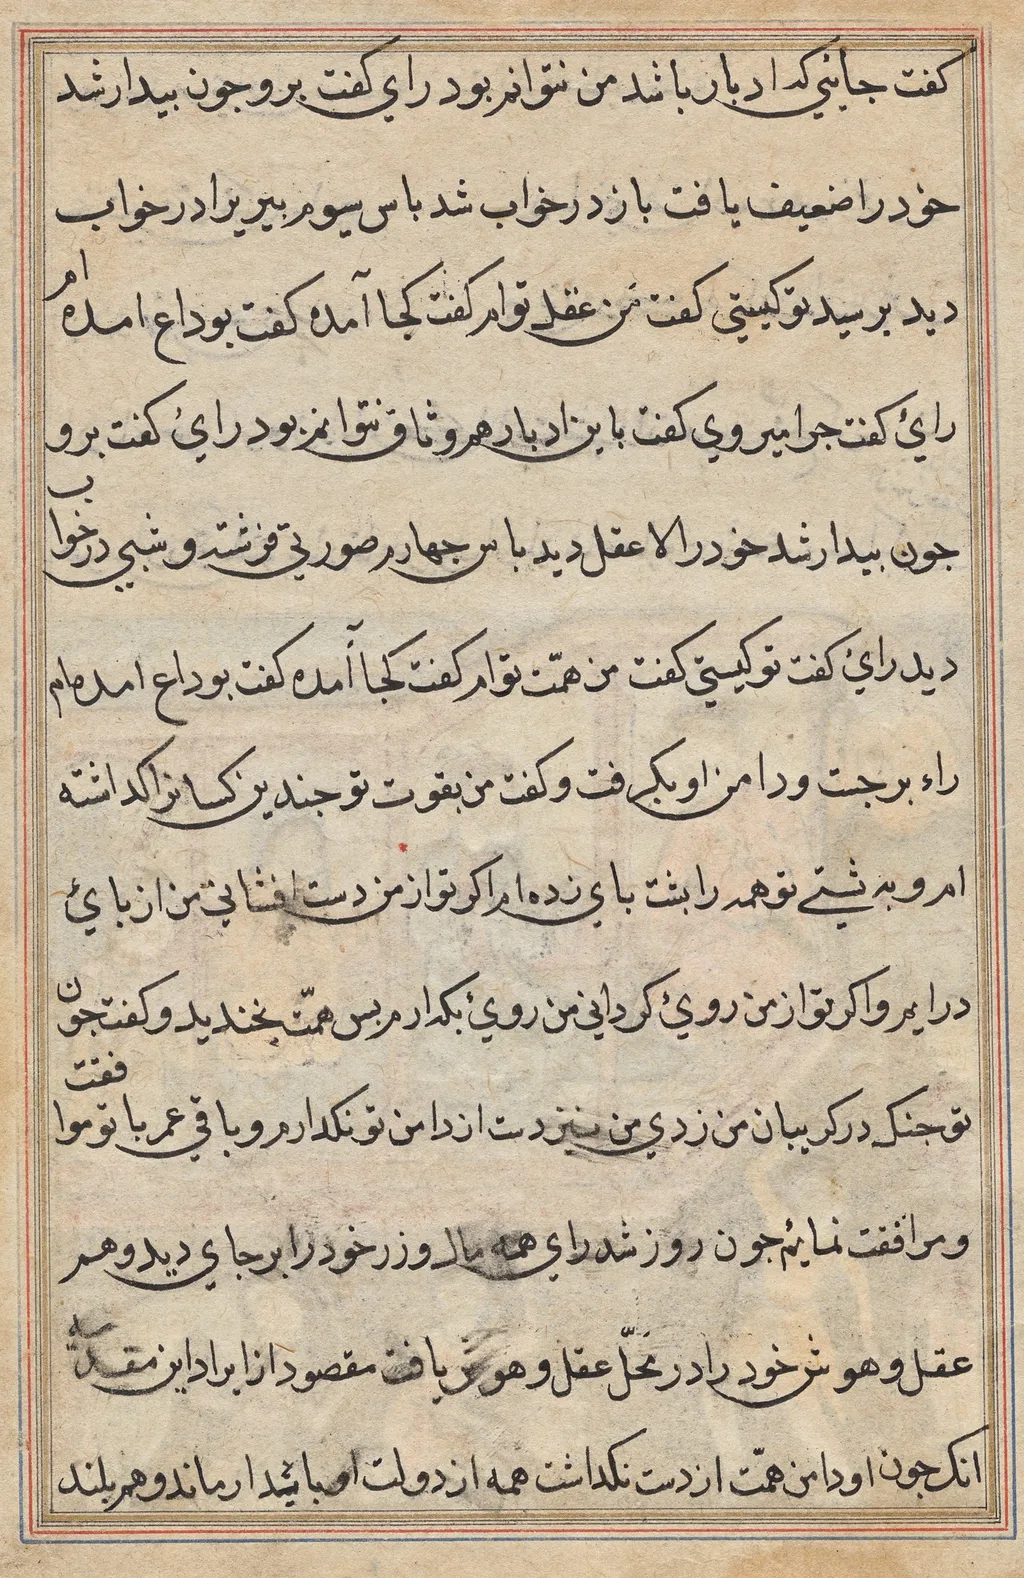 کفت جایئی که ادبار باشد من نتوانم بود رای کفت برو جون بیدار شد
خود را ضعیف یافت باز در خواب شد باس سیوم بیریرا در خواب
دید برسید تو کیستی کفت من عقل توام کفت کجا آمده کفت بوداع امده ام
رائ کفت جرا میروی کفت باین ادبار هم وثاق نتوانم بود رائ کفت برو
جون بیدار شد خود را لا عقل دید باس جهارم صورتی فرشته وشبی در خواب
دید رائ کفت تو کیستی کفت من همّت توام کفت کجا آمده کفت بوداع امده ام
راء برجست ودامن او بکرفت وکفت من بقوت تو جندین کسانرا کداشته
ام وبه شتی تو همه را بشت بای زده ام اکر تو از من دست افشانی من از بائ
درایم واکر تو از من روئ کردانی من روئ بکدارم بس همّت بخندید وکفت جون
تو جنک در کریبان من زدی من نیز دست از دامن تو نکدارم وباقی عمر با تو موافقت
ومرافقت نمایم جون روز شد رای همه مال وزر خود را بر جای دید وهم
عقل وهوش خود را در محَلّ عقل وهوش یافت مقصود از ایراد این مقدّمه
انک جون او دامن همّت از دست نکداشت همه از دولت او بایدار ماند وهم بلند